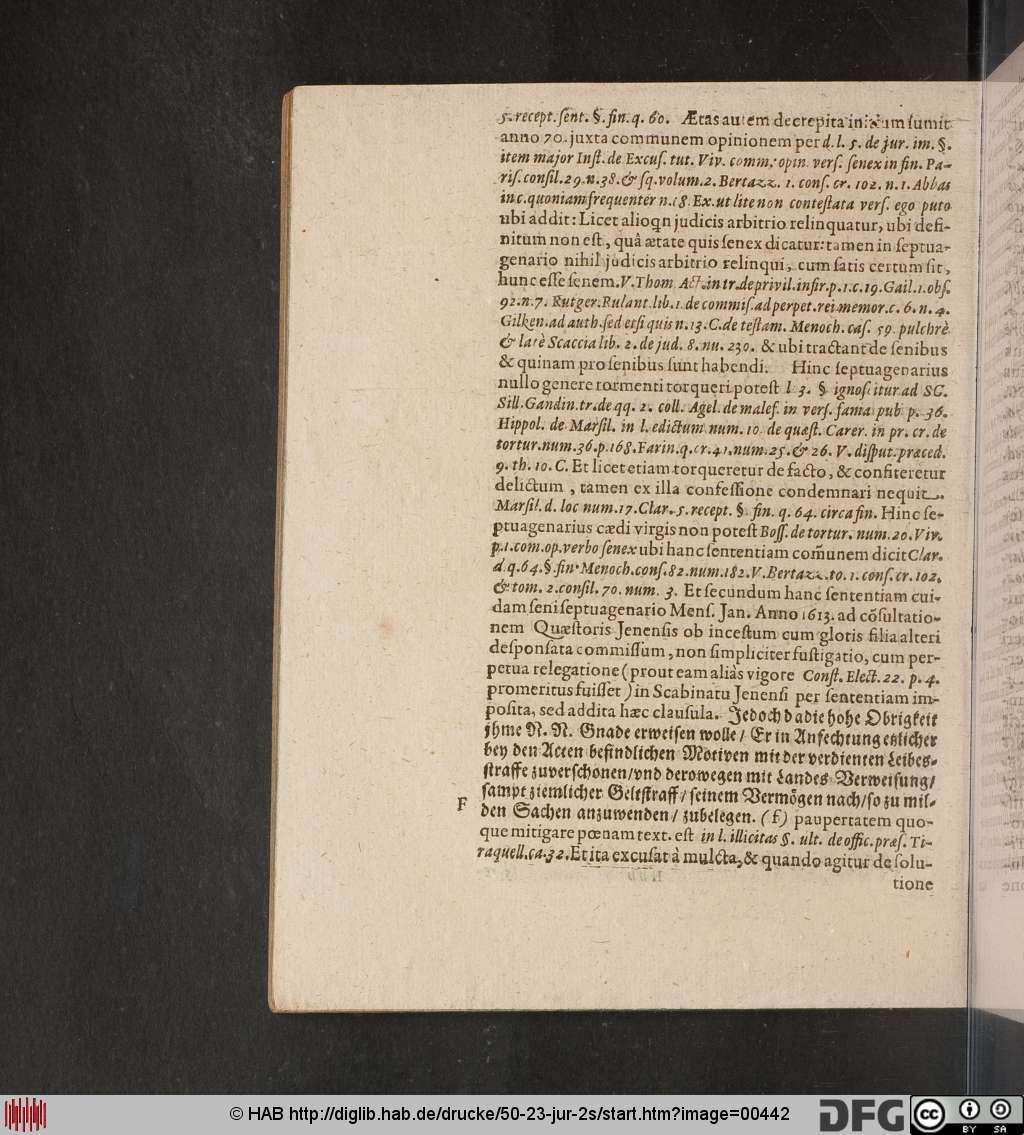 5. recept. ſent. §. fin. q. 60. Ætas autem decrepita initium ſumit
anno 70. juxta communem opinionem per d. l. 5. de jur. im. §.
item major Inſt. de Excuſ. tut. Viv. comm. opin. verſ. ſenex in fin. Pa-
riſ. conſil. 29. n. 38. & ſq. volum. 2. Bertazz. 1. conſ. cr. 102. n. 1. Abbas
in c. quoniam frequenter n. 18. Ex. ut lite non conteſtata verſ. ego puto
ubi addit: Licet alioqn judicis arbitrio relinquatur, ubi defi-
nitum non eſt, quâ ætate quis ſenex dicatur: tamen in ſeptua-
genario nihil judicis arbitrio relinqui, cum ſatis certum ſit,
hunc eſſe ſenem. V. Thom. Act. in tr. de privil. infir. p. 1. c. 19. Gail. 1. obſ.
92. n. 7. Rutger. Rulant. lib. 1. de commiſ. ad perpet. rei memor. c. 6. n. 4.
Gilken. ad auth. ſed etſi quis n. 13. C. de teſtam. Menoch. caſ. 59. pulchrè
& latè Scaccia lib. 2. de jud. 8. nu. 230. & ubi tractant de ſenibus
& quinam pro ſenibus ſunt habendi. Hinc ſeptuagenarius
nullo genere tormenti torqueri poteſt l. 3. § ignoſcitur. ad SC.
Sill. Gandin. tr. de qq. 2. coll. Agel. de malef. in verſ. fama pub p. 36.
Hippol. de Marſil. in l. edictum num. 10. de quæſt. Carer. in pr. cr. de
tortur. num. 36. p. 168. Farin. q. cr. 41. num. 25. & 26. V. diſput. præced.
9. th. 10. C. Et licet etiam torqueretur de facto, & confiteretur
delictum, tamen ex illa confeſſione condemnari nequit.
Marſil. d. loc num. 17. Clar. 5. recept. §. fin. q. 64. circa fin. Hinc ſe-
ptuagenarius cædi virgis non poteſt Boſſ. de tortur. num. 20. Viv.
p. 1. com. op. verbo ſenex ubi hanc ſententiam com̃unem dicit Clar.
d. q. 64. §. fin. Menoch. conſ. 82. num. 182. V. Bertazz. to. 1. conſ. cr. 102.
& tom. 2. conſil. 70. num. 3. Et ſecundum hanc ſententiam cui-
dam ſeni ſeptuagenario Menſ. Jan. Anno 1613. ad cõſultatio-
nem Quæſtoris Jenenſis ob inceſtum cum glotis filia alteri
deſponſata commiſſum, non ſimpliciter fuſtigatio, cum per-
petua relegatione (prout eam aliàs vigore Conſt. Elect. 22. p. 4.
promeritus fuiſſet) in Scabinatu Jenenſi per ſententiam im-
poſita, ſed addita hæc clauſula. Jedoch da die hohe Obrigkeit
ihme N. N. Gnade erweiſen wolle / Er in Anfechtung etzlicher
bey den Acten befindlichen Motiven mit der verdienten Leibes-
ſtraffe zuverſchonen / vnd derowegen mit Landes Verweiſung /
ſampt ziemlicher Geltſtraff / ſeinem Vermögen nach / ſo zu mil-
den Sachen anzuwenden / zubelegen. (f) paupertatem quo-
F
que mitigare pœnam text. eſt in l. illicitas §. ult. de offic. præſ. Ti-
raquell. ca. 32. Et ita excuſat à mulcta, & quando agitur de ſolu-
tione
© HAB http://diglib.hab.de/drucke/50-23-jur-2s/start.htm?image=00442
DFG
cc BY SA